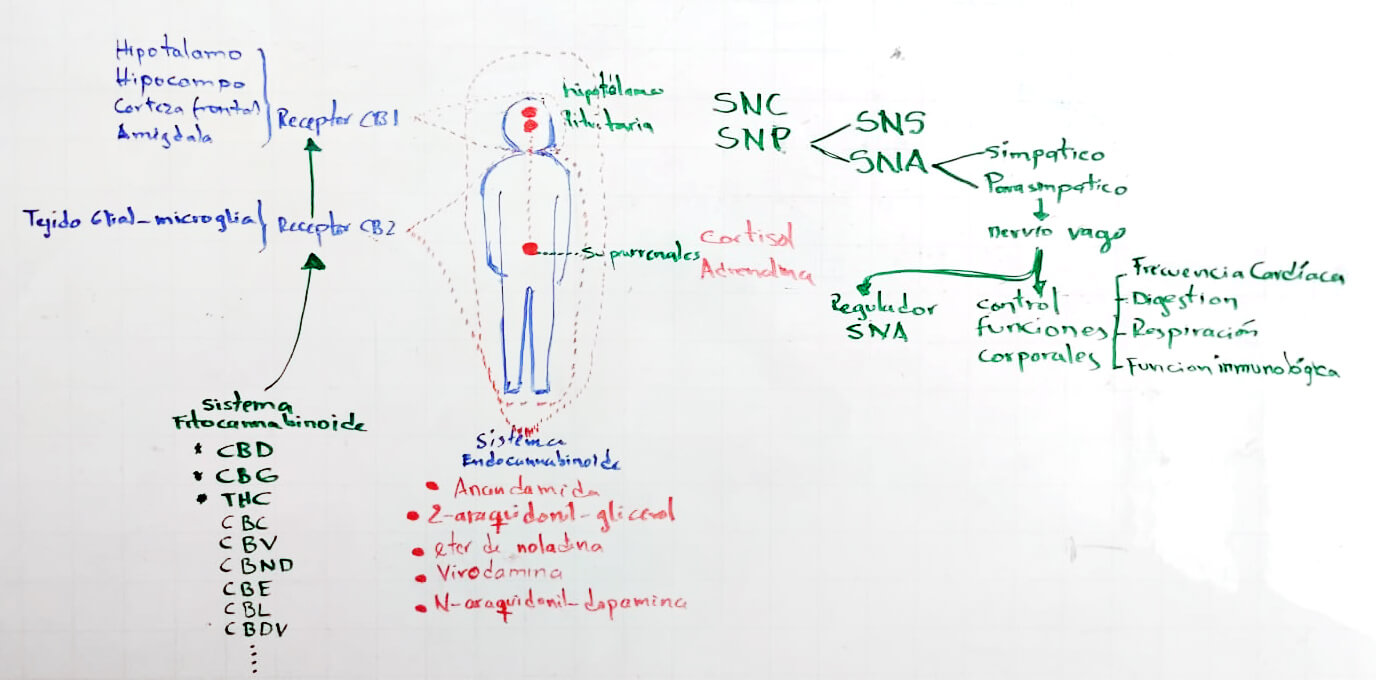 Hipotalamo
Hipocampo
Corteza frontal
Amigdala
Receptor CB1
Tejido Glial-microglia
Receptor CB2
Sistema
Fitocannabinoide
* CBD
* CBG
* THC
CBC
CBV
CBND
CBE
CBL
CBDV
hipotálamo
Pituitaria
Suprarrenales
Cortisol
Adrenalina
Sistema
Endocannabinoide
• Anandamida
• 2-araquidonil-glicerol
• eter de noladina
• Virodamina
• N-araquidonil-dopamina
SNC
SNP
SNS
SNA
Simpatico
Parasimpatico
nervio vago
Regulador
SNA
control
funciones
corporales
Frecuencia Cardíaca
Digestion
Respiración
Funcion inmunológica